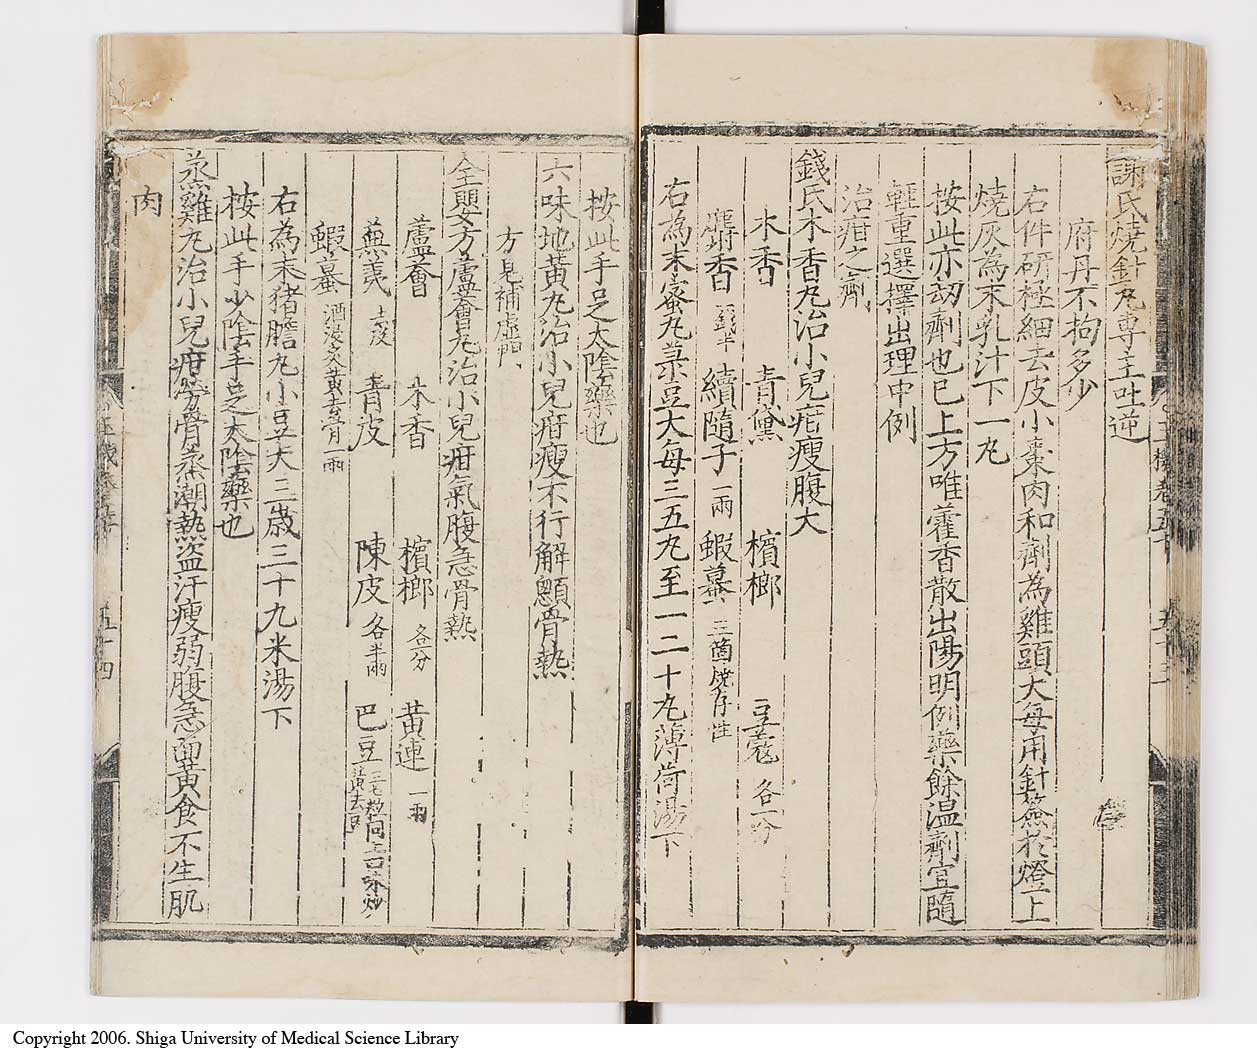 謝氏燒針丸專主吐逆
府丹不拘多少
右件研極細去皮小棗肉和劑為雞頭大每用針簽於燈上
燒灰為末乳汁下一丸
按此亦刼劑也已上方唯藿香散出陽明例藥餘溫劑宜隨
輕重選擇出理中例
治疳之劑
錢氏木香丸治小兒疳瘦腹大
木香 青黛 檳榔 豆蔻 各一分
麝香 一錢半 續隨子 一兩 蝦蟇 三箇燒存性
右為末蜜丸菉豆大每三五丸至一二十丸薄荷湯下
按此手足太陰藥也
六味地黃丸治小兒疳瘦不行解顱骨熱
方見補虛門
全嬰方蘆薈丸治小兒疳氣腹急骨熱
蘆薈 木香 檳榔 各一分 黃連 一兩
蕪荑 去皮 青皮 陳皮 各半兩 巴豆 三七粒同上三味炒黃去豆
蝦蟇 酒浸炙黃去骨一兩
右為末猪膽丸小豆大三歲三十丸米湯下
按此手少陰手足太陰藥也
蒸雞丸治小兒疳勞骨蒸潮熱盜汗瘦弱腹急面黃食不生肌
肉
五十四
Copyright 2006. Shiga University of Medical Science Library